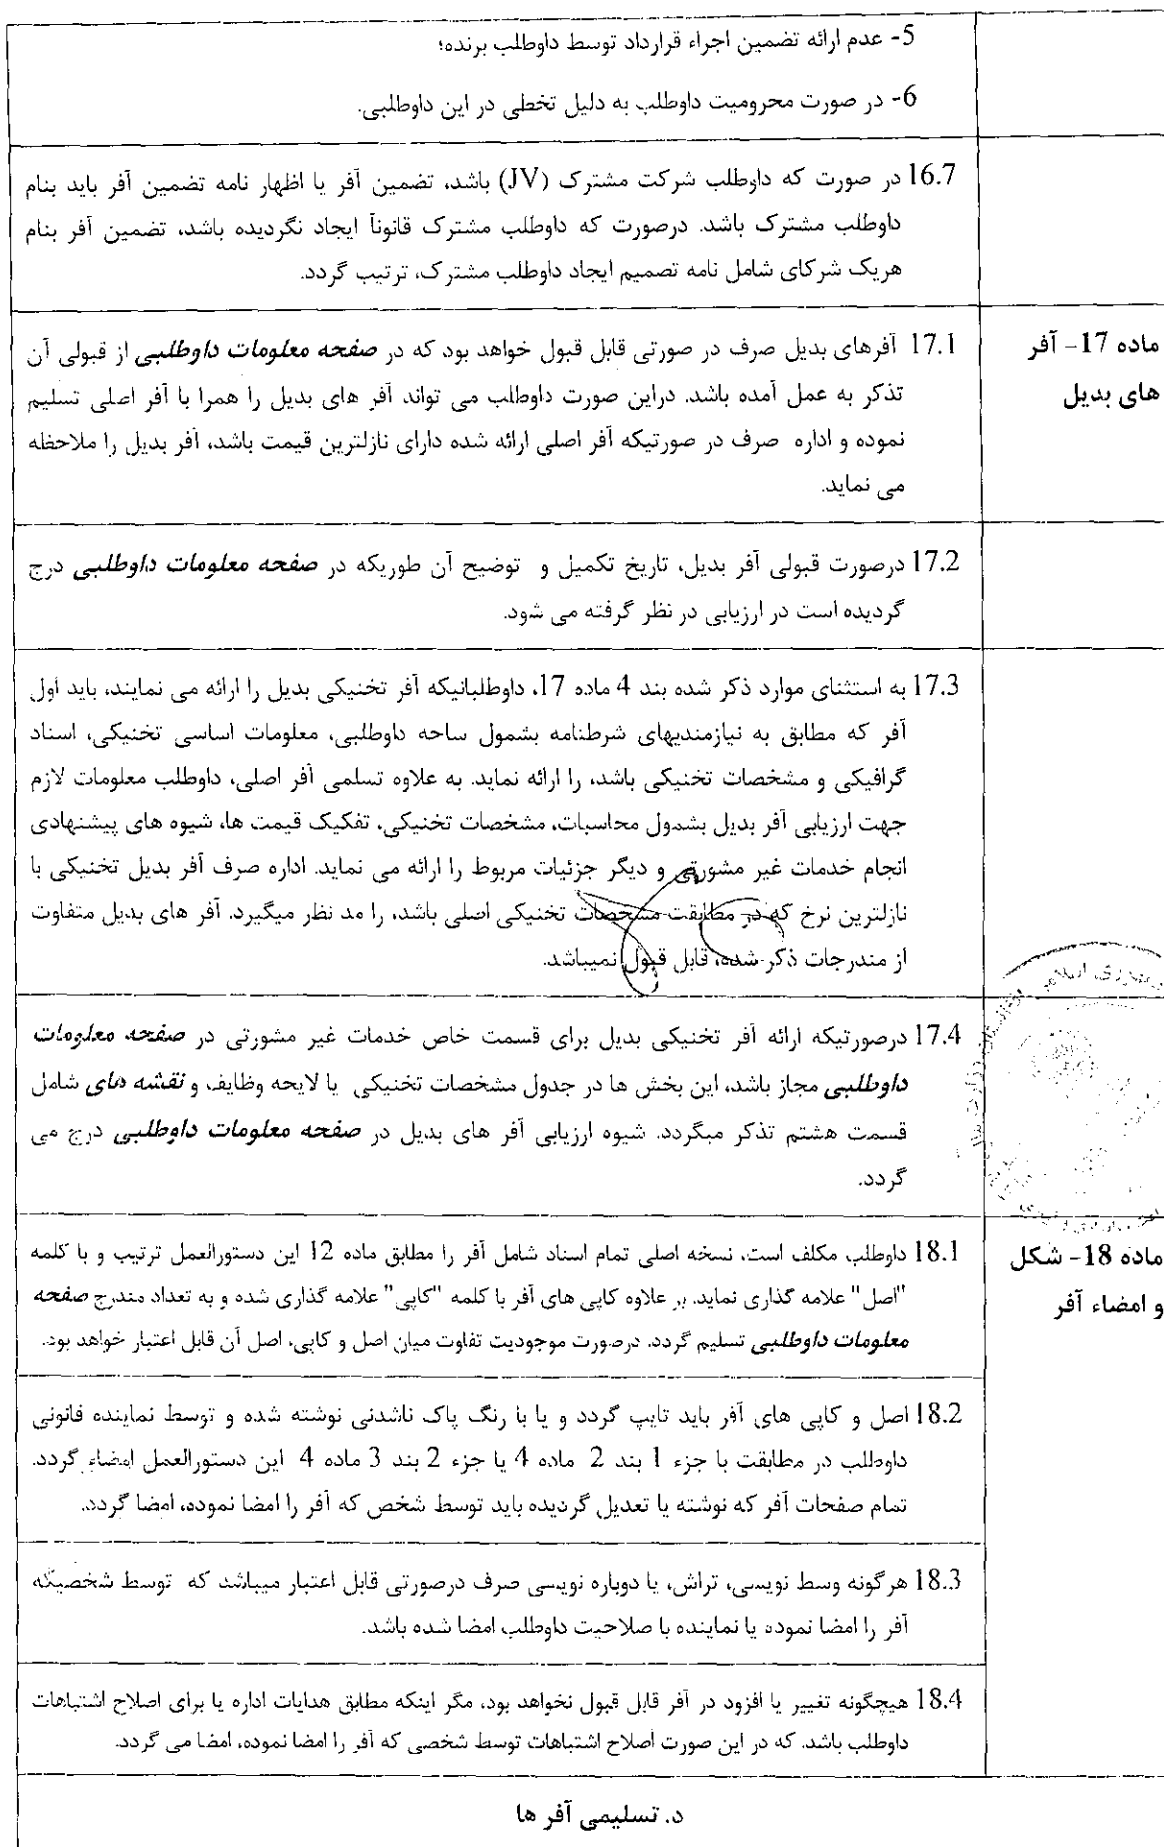 5- عدم ارائه تضمین اجراء قرارداد توسط داوطلب برنده؛
6- در صورت محرومیت داوطلب به دلیل تخطی در این داوطلبی.
16.7 در صورت که داوطلب شرکت مشترک (JV) باشد، تضمین آفر یا اظهار نامه تضمین آفر باید بنام
داوطلب مشترک باشد. درصورت که داوطلب مشترک قانوناً ایجاد نگردیده باشد، تضمین آفر بنام
هریک شرکای شامل نامه تصمیم ایجاد داوطلب مشترک، ترتیب گردد.
ماده 17- آفر
های بدیل
17.1 آفرهای بدیل صرف در صورتی قابل قبول خواهد بود که در صفحه معلومات داوطلبی از قبولی آن
تذکر به عمل آمده باشد. دراین صورت داوطلب می تواند آفر های بدیل را همرا با آفر اصلی تسلیم
نموده و اداره صرف در صورتیکه آفر اصلی ارائه شده دارای نازلترین قیمت باشد، آفر بدیل را ملاحظه
می نماید.
17.2 درصورت قبولی آفر بدیل، تاریخ تکمیل و توضیح آن طوریکه در صفحه معلومات داوطلبی درج
گردیده است در ارزیابی در نظر گرفته می شود.
17.3 به استثنای موارد ذکر شده بند 4 ماده 17، داوطلبانیکه آفر تخنیکی بدیل را ارائه می نمایند، باید اول
آفر که مطابق به نیازمندیهای شرطنامه بشمول ساحه داوطلبی، معلومات اساسی تخنیکی، اسناد
گرافیکی و مشخصات تخنیکی باشد، را ارائه نماید. به علاوه تسلمی آفر اصلی، داوطلب معلومات لازم
جهت ارزیابی آفر بدیل بشمول محاسبات، مشخصات تخنیکی، تفکیک قیمت ها، شیوه های پیشنهادی
انجام خدمات غیر مشورتی و دیگر جزئیات مربوط را ارائه می نماید. اداره صرف آفر بدیل تخنیکی با
نازلترین نرخ که در مطابقت مشخصات تخنیکی اصلی باشد، را مد نظر میگیرد. آفر های بدیل متفاوت
از مندرجات ذکر شده، قابل قبول نمیباشد.
17.4 درصورتیکه ارائه آفر تخنیکی بدیل برای قسمت خاص خدمات غیر مشورتی در صفحه معلومات
داوطلبی مجاز باشد، این بخش ها در جدول مشخصات تخنیکی یا لایحه وظایف و نقشه های شامل
قسمت هشتم تذکر میگردد. شیوه ارزیابی آفر های بدیل در صفحه معلومات داوطلبی درج می
گردد.
ماده 18- شکل
و امضاء آفر
18.1 داوطلب مکلف است، نسخه اصلی تمام اسناد شامل آفر را مطابق ماده 12 این دستورالعمل ترتیب و با کلمه
"اصل" علامه گذاری نماید. بر علاوه کاپی های آفر با کلمه "کاپی" علامه گذاری شده و به تعداد مندرج صفحه
معلومات داوطلبی تسلیم گردد. درصورت موجودیت تفاوت میان اصل و کاپی، اصل آن قابل اعتبار خواهد بود.
18.2 اصل و کاپی های آفر باید تایپ گردد و یا با رنگ پاک ناشدنی نوشته شده و توسط نماینده قانونی
داوطلب در مطابقت با جزء 1 بند 2 ماده 4 یا جزء 2 بند 3 ماده 4 این دستورالعمل امضاء گردد.
تمام صفحات آفر که نوشته یا تعدیل گردیده باید توسط شخص که آفر را امضا نموده، امضا گردد.
18.3 هرگونه وسط نویسی، تراش، یا دوباره نویسی صرف درصورتی قابل اعتبار میباشد که توسط شخصیکه
آفر را امضا نموده یا نماینده با صلاحیت داوطلب امضا شده باشد.
18.4 هیچگونه تغییر یا افزود در آفر قابل قبول نخواهد بود، مگر اینکه مطابق هدایات اداره یا برای اصلاح اشتباهات
داوطلب باشد. که در این صورت اصلاح اشتباهات توسط شخصی که آفر را امضا نموده، امضا می گردد.
د. تسلیمی آفر ها